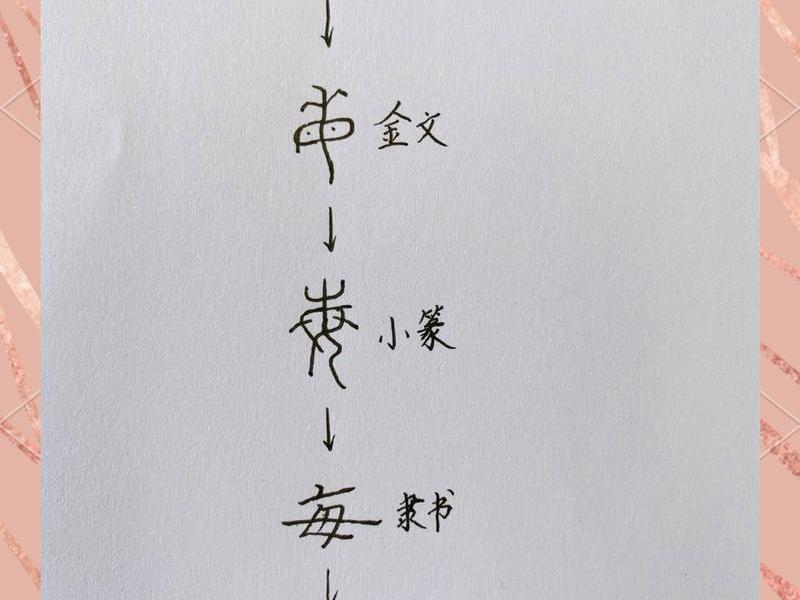 金文
小篆
每 隶书